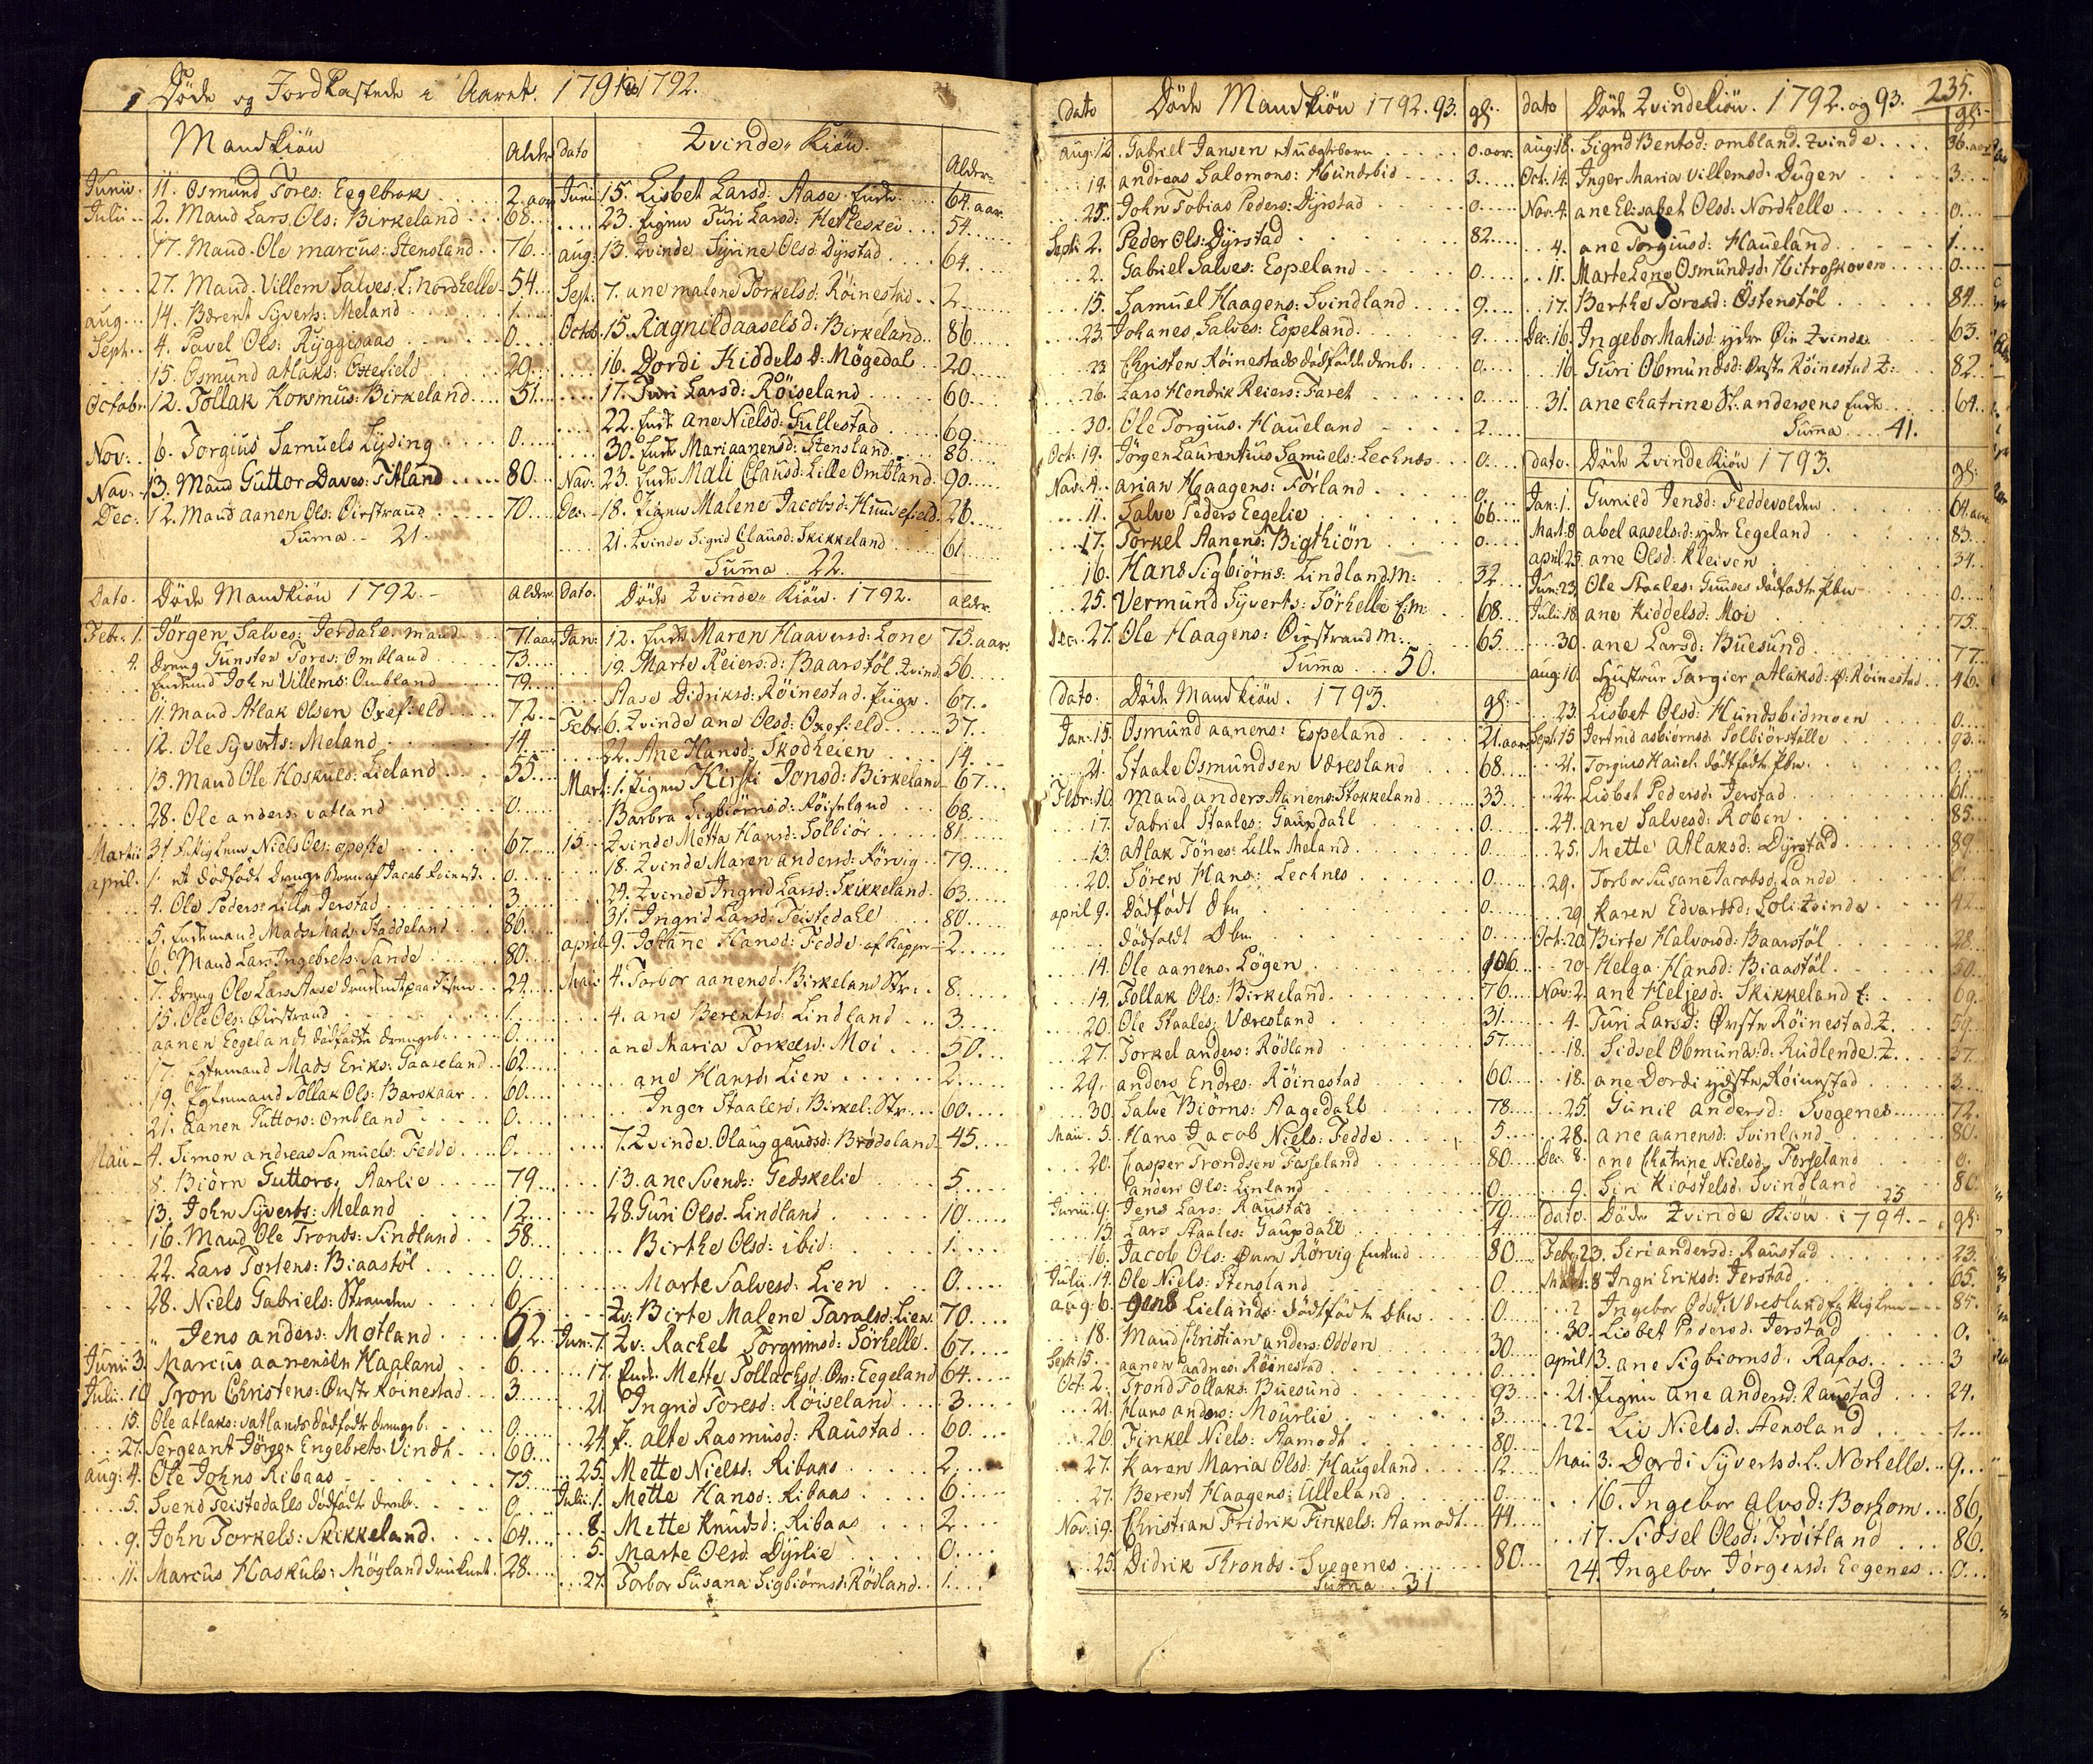 Døde og Jord Kastede i Aaret. 1791 1792.
Mandkiön
Aldr.
Junii. 11. Osmund Tores: Eegebrok 2. aar
Julii 2. Mand Lars Ols: Birkeland 68.
17. Mand. Ole marcus: Stensland 76
27. Mand. Villem Salves: L: Nordhelle 54
aug. 14. Bærent Syverts: Meland 1.
Sept. 4. Pavel Ols: Ryggisaas 0.
15. Osmund atlaks: Oxefield 29
Octobr. 12. Tollak Korsmus: Birkeland 51.
Nov: 6. Torgius Samuels Lyding 0.
Nov: 13. Mand Guttor Daves: Titland 80
Dec: 12. Mand aanen Ols: Öirstrand 70
Suma 21.
dato Zvinde Kiön. Alder
Junii 15. Lisbet Larsd: Aase Enke 64. aar
23. Pigen Turi Larsd: Hetleskei 54
aug: 13. Zvinde Syrine Olsd: Dyrstad 64.
Sept: 7. ane malene Torkelsd: Röinestad 2
Octob: 15. Ragnild aaselsd: Birkeland 86
16. Dordi Kiddelsd: Mögedal 20
17. Turi Larsd: Röiseland 60
22. Enke Ane Nielsd: Gullestad 69
30. Enke Mari aanensd: Stensland 86
Nov: 23. Enke Mali Clausd: Lille Ombland 90
Dec: 18. Pigen Malene Jacobsd: Hunnefield 26
21. Zvinde Sigrid Clausd: Skikkeland 61
Suma 22.
Dato. Døde Mandkiön 1792. Alder.
Febr: 1. Jörgen Salves: Jerdahl mand 71. aar
4. dreng Gunsten Tores: Ombland 73
Enkemd John Villems: Ombland 79
11. Mand Atlak Olsen Oxefield 72
12. Ole Syverts: Meland 14
15. Mand Ole Hoskuls: Lieland 55
28. Ole anders: vatland 0
Martii 31 Niels Ols: 67
april. 1. et dødfødt drenge Barn af Jacob 0
4. Ole Peders: Lille Jerstad 3
5. Enkemand Mads Mads: Staddeland 86
6. Mand Lars Ingebrets: Sande 80
7. Dreng Ole Lars: Aase druknet paa 24
15. Ole Ols: Öirstrand 1.
aanen Eegelands dødfødte drengeb: 0
17. Egtemand Mads Eriks: Gaaseland 62
19. Egtemand Tollak Ols: Barskaar 60
21. Aanen Guttors: Ombland 0
Maii 4. Simon andreas Samuels: Fedde 0
8. Biörn Guttors: Aarlie 79
13. John Syverts: Meland 12
16. Mand Ole Tronds: Sindland 58
22. Lars Tostens: Biaastöl 0
28. Niels Gabriels: Stranden 6
Jens anders: Motland 62
Junii 3. Marcus aanensen Hagland 6
Julii 10 Tron Christens: Öirste Röinestad 3
15. Ole atlaks: vatlands dødfødte drengeb: 0
27. Sergeant Jörgen Engebrets: Vindh 60
aug: 4. Ole Johns Ribaas 75
5. Svend Teistedahls dødfødte drenb. 0
9. John Torkels: Skikkeland 64
11. Marcus Hoskuls: Mögland druknet 28
Dato. Døde Zvinde Kiön. 1792. alder.
Jan: 12. Enke Maren Haaversd: Lone 75. aar
19. Marte Reiersd: Baarstöl. Zvind. 56
Aase Didriksd: Röinestad. Pige 67
Febr: 6. Zvinde ane Olsd: Oxefield 37
22. Ane Hansd: Skodheien 14
Mart: 1. Pigen Kirsti Jonsd: Birkeland 67
Barbra Sigbiörnsd: Röiseland 68
15 Zvinde Metta Hansd: Solbiör 81
18. Zvinde Maren andersd: Rörvig 79
24. Zvinde Ingrid Larsd: Skikkeland 63
31. Ingrid Larsd: Teistedahl 80
april 9. Johanne Hansd: Fedde af kopper 2
Maii 4. Torbor aanensd: Birkeland Str: 8
4. ane Berentsd: Lindland 3
ane Maria Torkelsd: Moi 50
ane Hansd: Lien 2
Inger Staalesd: Birkel: Str: 60
7. Zvinde Olaug gaudsd: Brödsland 45
13. ane Svends: Gedskelie 5
28. Guri Olsd: Lindland 10
Birthe Olsd: ibid: 1.
Marte Salvesd: Lien 0
Zv: Birte Malene Taralsd: Lien 70
Jun: 7. Zv: Rachel Torgrimsd: Sörhelle 67
17. Enke Mette Tollachsd: Ös: Eegeland 64
21 Ingrid Toresd: Röiseland 3
24 P. alte Rasmusd: Raustad 60
25. Mette Nielsd: Ribaas 2
Julii 1. Mette Hansd: Ribaas 6
8. Mette Knudsd: Ribaas 2
5. Marte Olsd: Dyrlie 0
27. Torbor Susana Sigbiörnsd: Rödland 1.
dato Døde Mandkiön 1792. 93.
aug: 12. Gabriel Jansen et uægteborn 0. aar
19. andreas Salomons: Hundsbid 3
25. John Tobias Peders: Dyrstad 0
Septr 2. Peder Ols: Dyrstad 82
2. Gabriel Salves: Espeland 0
15. Samuel Haagens: Svindland 9
23. Johanes Salves: Espeland 9
23. Christen Röinestads dødfødde drenb: 0
26. Lars Hendrik Reiers: Faret 0
30. Ole Torgius: Haueland 2
Oct. 19. Jörgen Laurentius Samuels: Lechnes 0
Nov: 4. arian Haagens: Förland 0
11. Salve Peders Eegelie 66
17. Torkel Aanens: Bigthiön 0
16. Hans Sigbiörns: Lindland m: 32
25. Vermund Syverts: Sörhelle E:m: 68
Dec: 27. Ole Haagens: Öirstrand m: 65
Suma 50.
Dato. Døde Mand kiön. 1793.
Jan: 15. Osmund aanens: Espeland 21. aar
21. Staale Osmundsen Væresland 68
Febr: 10 Mand anders Aanens: Stokkeland 33
17. Gabriel Staales: Gaupdahl 0
13. atlak Tönes: Lille Meland 0
20. Sören Hans: Lechnes 0
april 9. Dødfødt dbn 0
dødfødt dbn 0
14. Ole aanens: Lögen 106
14. Tollak Ols: Birkeland 76
20. Ole Staales: Væresland 31
27. Torkel anders: Rödland 57
29. anders Endres: Röinestad 60
30 Salve Biörns: Aagedahl 78
Maii. 5. Hans Jacob Niels: Fedde 5
20. Casper Trondsen Fasseland 80
anders Ols: Linland 0
Junii. 9. Jens Lars: Raustad 79
13. Lars Staales: Gaupdahl 4
16. Jacob Ols: Övre Rörvig Enkmd 80
Julii. 14. Ole Niels: Stensland 0
aug: 6. Jens Lielands: dødfødte dbn 0
18. Mand Christian anders: Odden 30
Sept: 15. aanen Aadnes: Röinestad 0
Oct: 2. Trond Tollaks: Buesund 93
21. Hans anders: Mourlie 3
26. Finkel Niels: Aamodt 80
27. Karen Maria Olsd: Haugeland 12
27. Berent Haagens: Ulleland 0
Nov: 19. Christian Fridrik Finkels: Aamodt 44
25. Didrik Thronds: Svegenes 80
Suma 31
dato Døde Zvindekiön. 1792. og 93. 235.
aug: 18. Sigrid Bentsd: ombland. Zvinde 36. aar
Oct: 14. Inger Maria Villemsd: Dugen 3
Nov: 4. ane Elisabet Olsd: Nordhelle 0
4. ane Torgiusd: Haueland 1.
11. Marte Lene Osmundsd: Hitroskoven 0
17. Berthe Toresd: Östenstöl 84
Dec: 16. Ingebor Matisd: ydre Öie Zvinde 63
16 Guri Obmundsd: Öyste Röinestad Z: 82
31. ane chatrine Sl. andersens Enke 64
Suma 41.
dato. Døde Zvinde Kiön 1793.
Jan: 1. Gunild Jensd: Feddevolden 64. aar
Mart: 8 abel aaselsd: ydre Eegeland 83
april 25. ane Olsd: Kleiven 34
Jun: 23. Ole Staales: Gunses dødfødte Pbn 0
Julii 18. ane Kiddelsd: Moi 75
30. ane Larsd: Buesund 77
aug: 10. Hustrue Targier atlaksd: Ö: Röinestad 46
23. Lisbet Olsd: Hundsbidmoen 0
Sept: 15 Jertrud asbiörnsd: Solbiörstelle 93
21. Torgius Haueh: dødfødte Pbn 0
22. Lisbet Pedersd: Jerstad 61
24. ane Salvesd: Roben 85
25. Mette Atlaksd: Dyrstad 89
29. Torbor Susane Jacobsd: Lande 0
29. Karen Edvardsd: Soli Zvinde 42
Oct: 20. Birte Halvorsd: Baarstöl 28
20. Helga Hansd: Biaastöl 50
Nov: 2. ane Heljesd: Skikkeland E: 69
4. Turi Larsd: Öyste Röinestad Z. 59
18. Sidsel Obmundsd: Rudlende. Z. 37
18. ane Dordi ydste Röinestad 3
25. Gunil andersd: Svegenes 72
28. ane aanensd: Svinland 80
Dec: 8. ane Chatrine Nielsd: Torseland 0
9. Siri Kiöstelsd: Svindland 80
25
Dato. Døde Zvinde Kiön. 1794.
Febr: 23. Siri andersd: Raustad 23
Mart: 8 Ingri Eriksd: Jerstad 65
Ingebor Odsd: Væresland fattiglem 85
30. Lisbet Pedersd: Jerstad 0
april 13. ane Sigbiornsd: Rafos 3
21. Pigen ane andersd: Raustad 24
22 Liv Nielsd: Aensland 1
Maii 3. Dordi Syvertsd: L. Norhelle 9
16. Ingebor Alvsd: Borhom 86
17. Sidsel Olsd: Fröitland 86
24. Ingebor Jörgensd: Eegenes 0